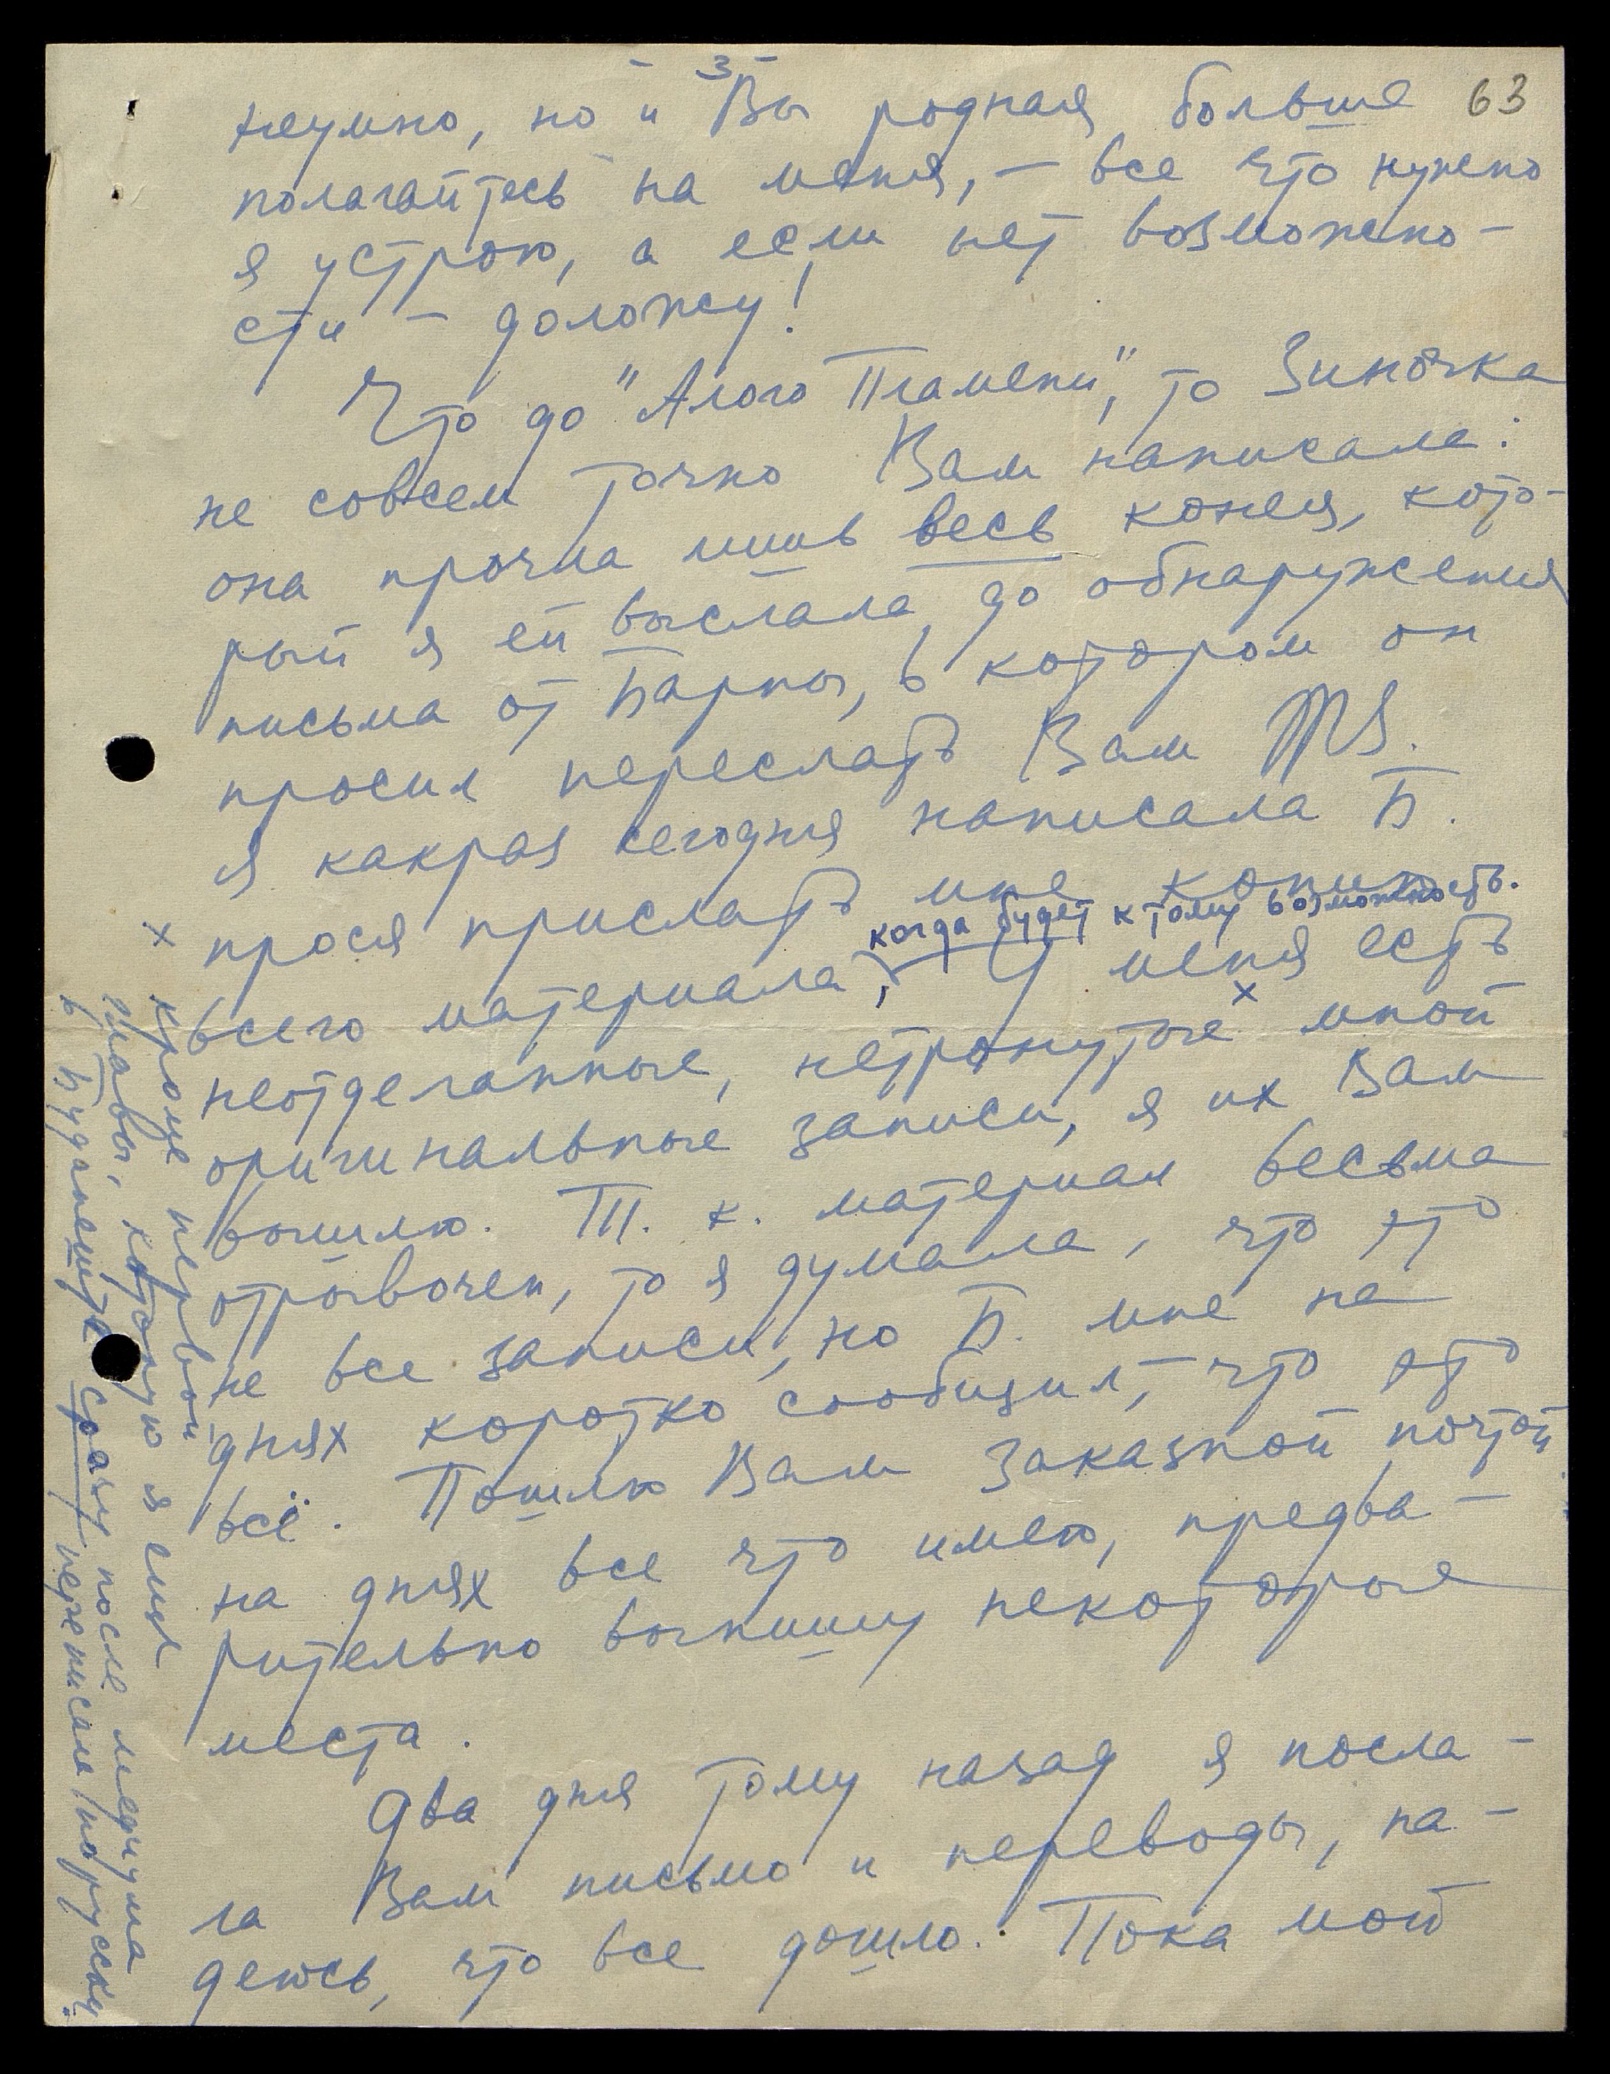 - 3 -
63
неумно, но и Вы родная больше
полагайтесь на меня, - все что нужно
я устрою, а если нет возможно-
сти - доложу!
Что до "Алого Пламени", то Зиночка
не совсем точно Вам написала:
она прочла лишь весь конец, кото-
рый я ей выслала до обнаружения
письма от Барны, в котором он
просил переслать Вам MS.
Я какраз сегодня написала Б.
прося прислать мне копию
когда будет к тому возможность.
всего материала, У меня есть
неотделанные, нетронутые x мной
оригинальные записи, я их Вам
вышлю. Т. к. материал весьма
отрывочен, то я думала, что это
не все записи, но Б. мне на
днях коротко сообщил, что это
всё. Пошлю Вам заказной почтой
на днях все что имею, предва-
рительно выпишу некоторые
места.
Два дня тому назад я посла-
ла Вам письмо и переводы, на-
деюсь, что все дошло. Пока мой
x кроме первой
главы, которую я еще
в Будапеште сразу после медиума
переписала по русски.